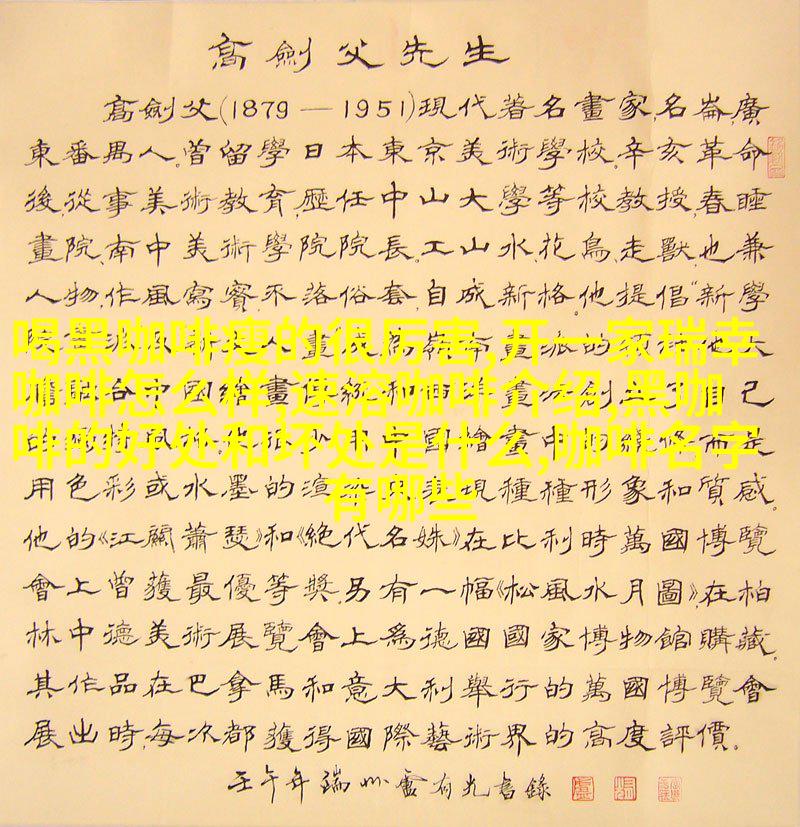 高劍父先生
高劍父(1879—1951)現代著名畫家,名崙,廣
東番禺人。曾留學日本東京美術學校。辛亥革命
後,從事美術教育,歷任中山大學等校教授,春睡
畫院、南中美術學院院長。工山水、花鳥、走獸,也兼
人物,作風寫實,不落俗套,自成新格。他提倡“新學
喝黑咖啡瘦的很厉害,开一家瑞幸
咖啡怎么样,速溶咖啡介绍,黑咖
啡的好处和坏处是什么,咖啡名字
有哪些
用色彩或水墨的渲染
表現種種形象和質感。
他的《江關蕭瑟》和《絕代名姝》在比利時萬國博覽
會上曾獲最優等獎。另有一幅《松風水月圖》,在柏
林中德美術展覽會上爲德國國家博物館購藏。
其作品在巴拿馬和意大利舉行的萬國博覽會
展出時,每次都獲得國際藝術界的高度評價。
壬午年端州盧有光書錄